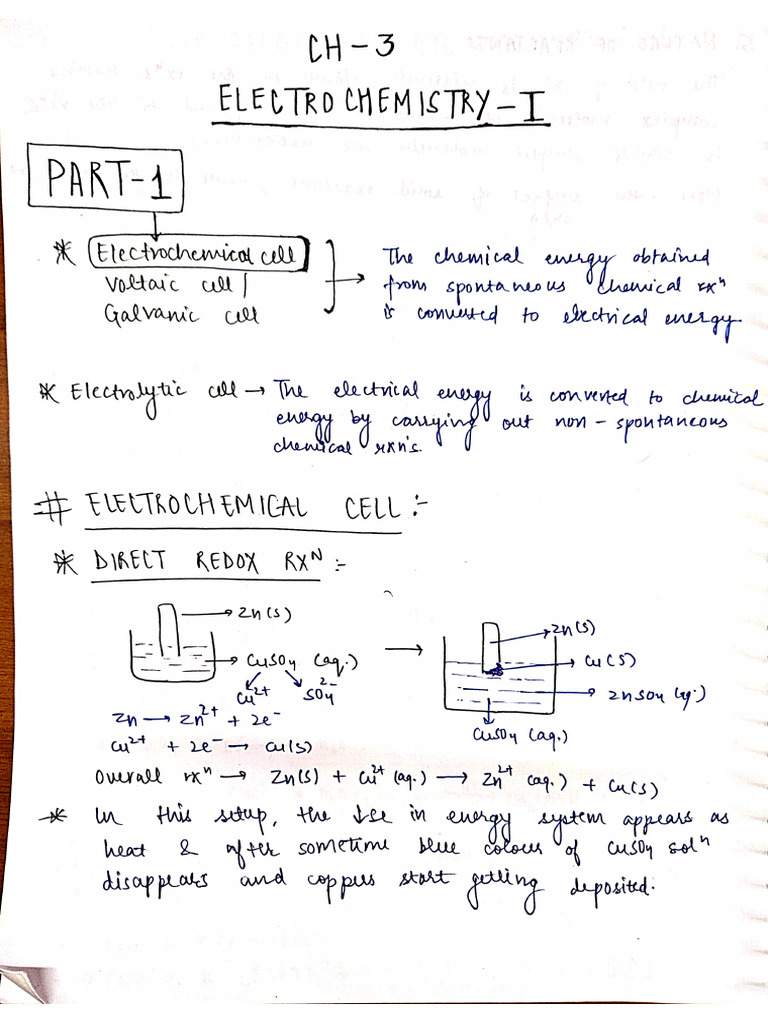 CH-3
ELECTROCHEMISTRY-I
PART-1
* Electrochemical cell
Voltaic cell/
Galvanic cell
The chemical energy obtained
from spontaneous chemical rxⁿ
is converted to electrical energy
* Electrolytic cell → The electrical energy is converted to chemical
energy by carrying out non-spontaneous
chemical rxn's.
# ELECTROCHEMICAL CELL :-
* DIRECT REDOX RXᴺ :-
Zn(s)
CuSO₄ (aq.)
Cu²⁺ SO₄²⁻
→
Zn(s)
Cu(s)
ZnSO₄ (aq.)
CuSO₄ (aq.)
Zn → Zn²⁺ + 2e⁻
Cu²⁺ + 2e⁻ → Cu(s)
Overall rxⁿ → Zn(s) + Cu²⁺ (aq.) → Zn²⁺ (aq.) + Cu(s)
* In this setup, the ↓se in energy system appears as
heat & after sometime blue colour of CuSO₄ solⁿ
disappears and copper start getting deposited.